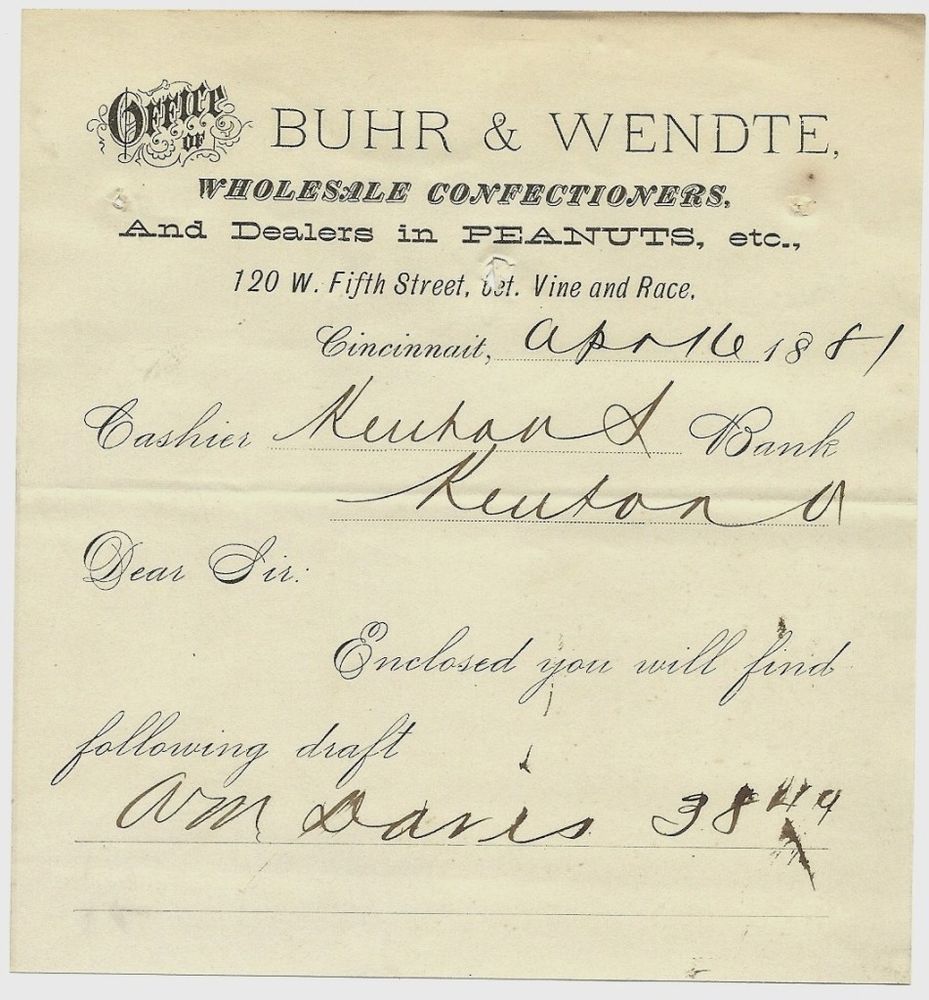 OFFICE OF BUHR & WENDTE,
WHOLESALE CONFECTIONERS,
And Dealers in PEANUTS, etc.,
120 W. Fifth Street, bet. Vine and Race.
Cincinnait, Apr 16 1881
Cashier Kenton S Bank
Kenton O
Dear Sir:
Enclosed you will find
following draft
Wm Davis 38 44